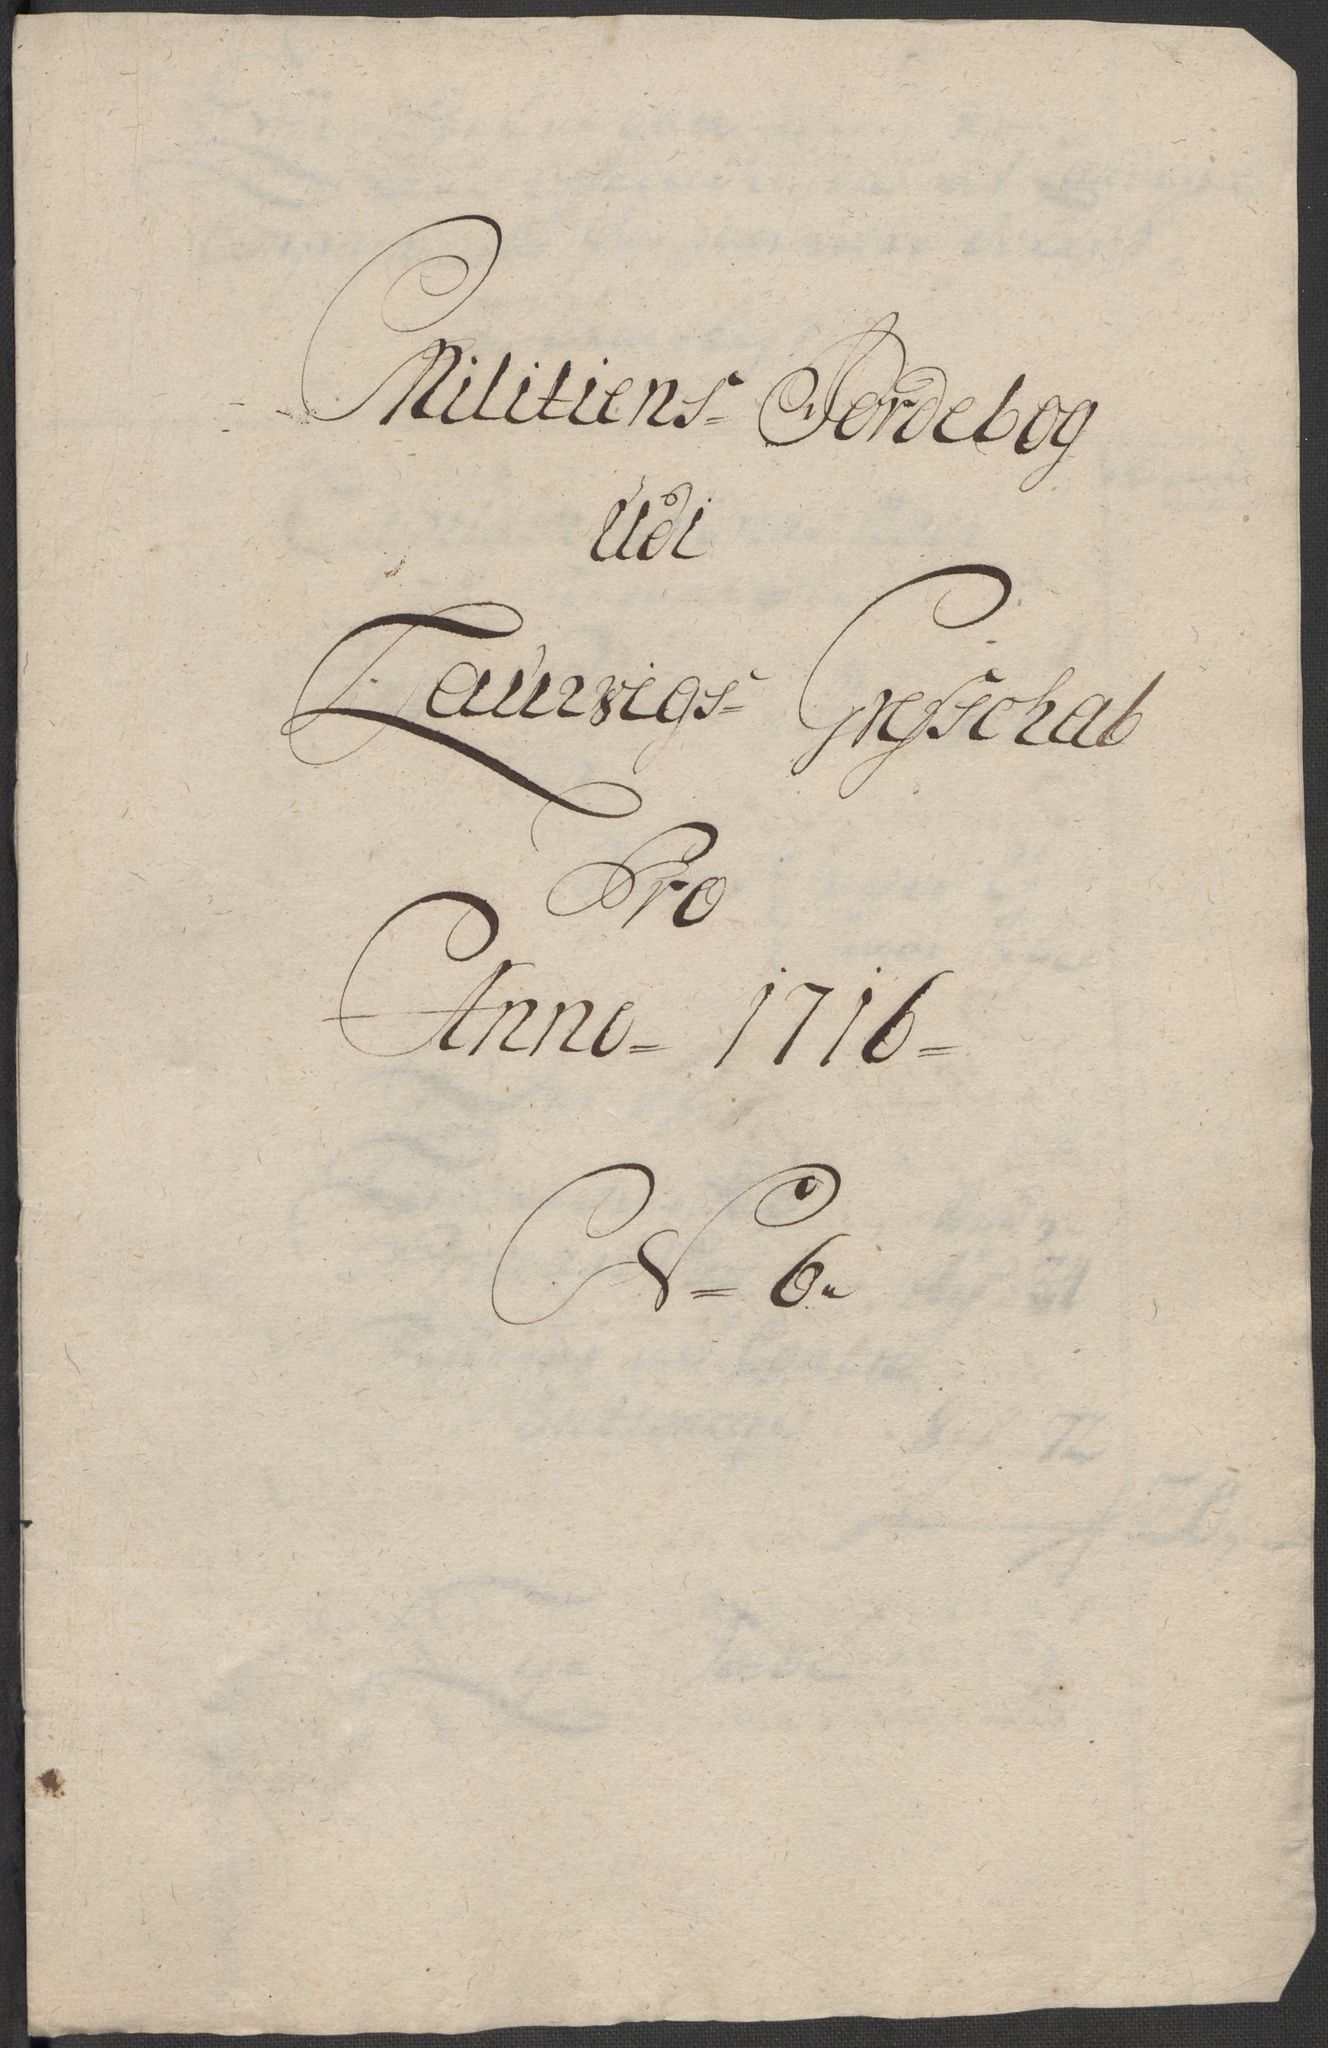 Militiens Jordebog
Udi
Laurvigs Grefschab
Pro
Anno 1716
N 6